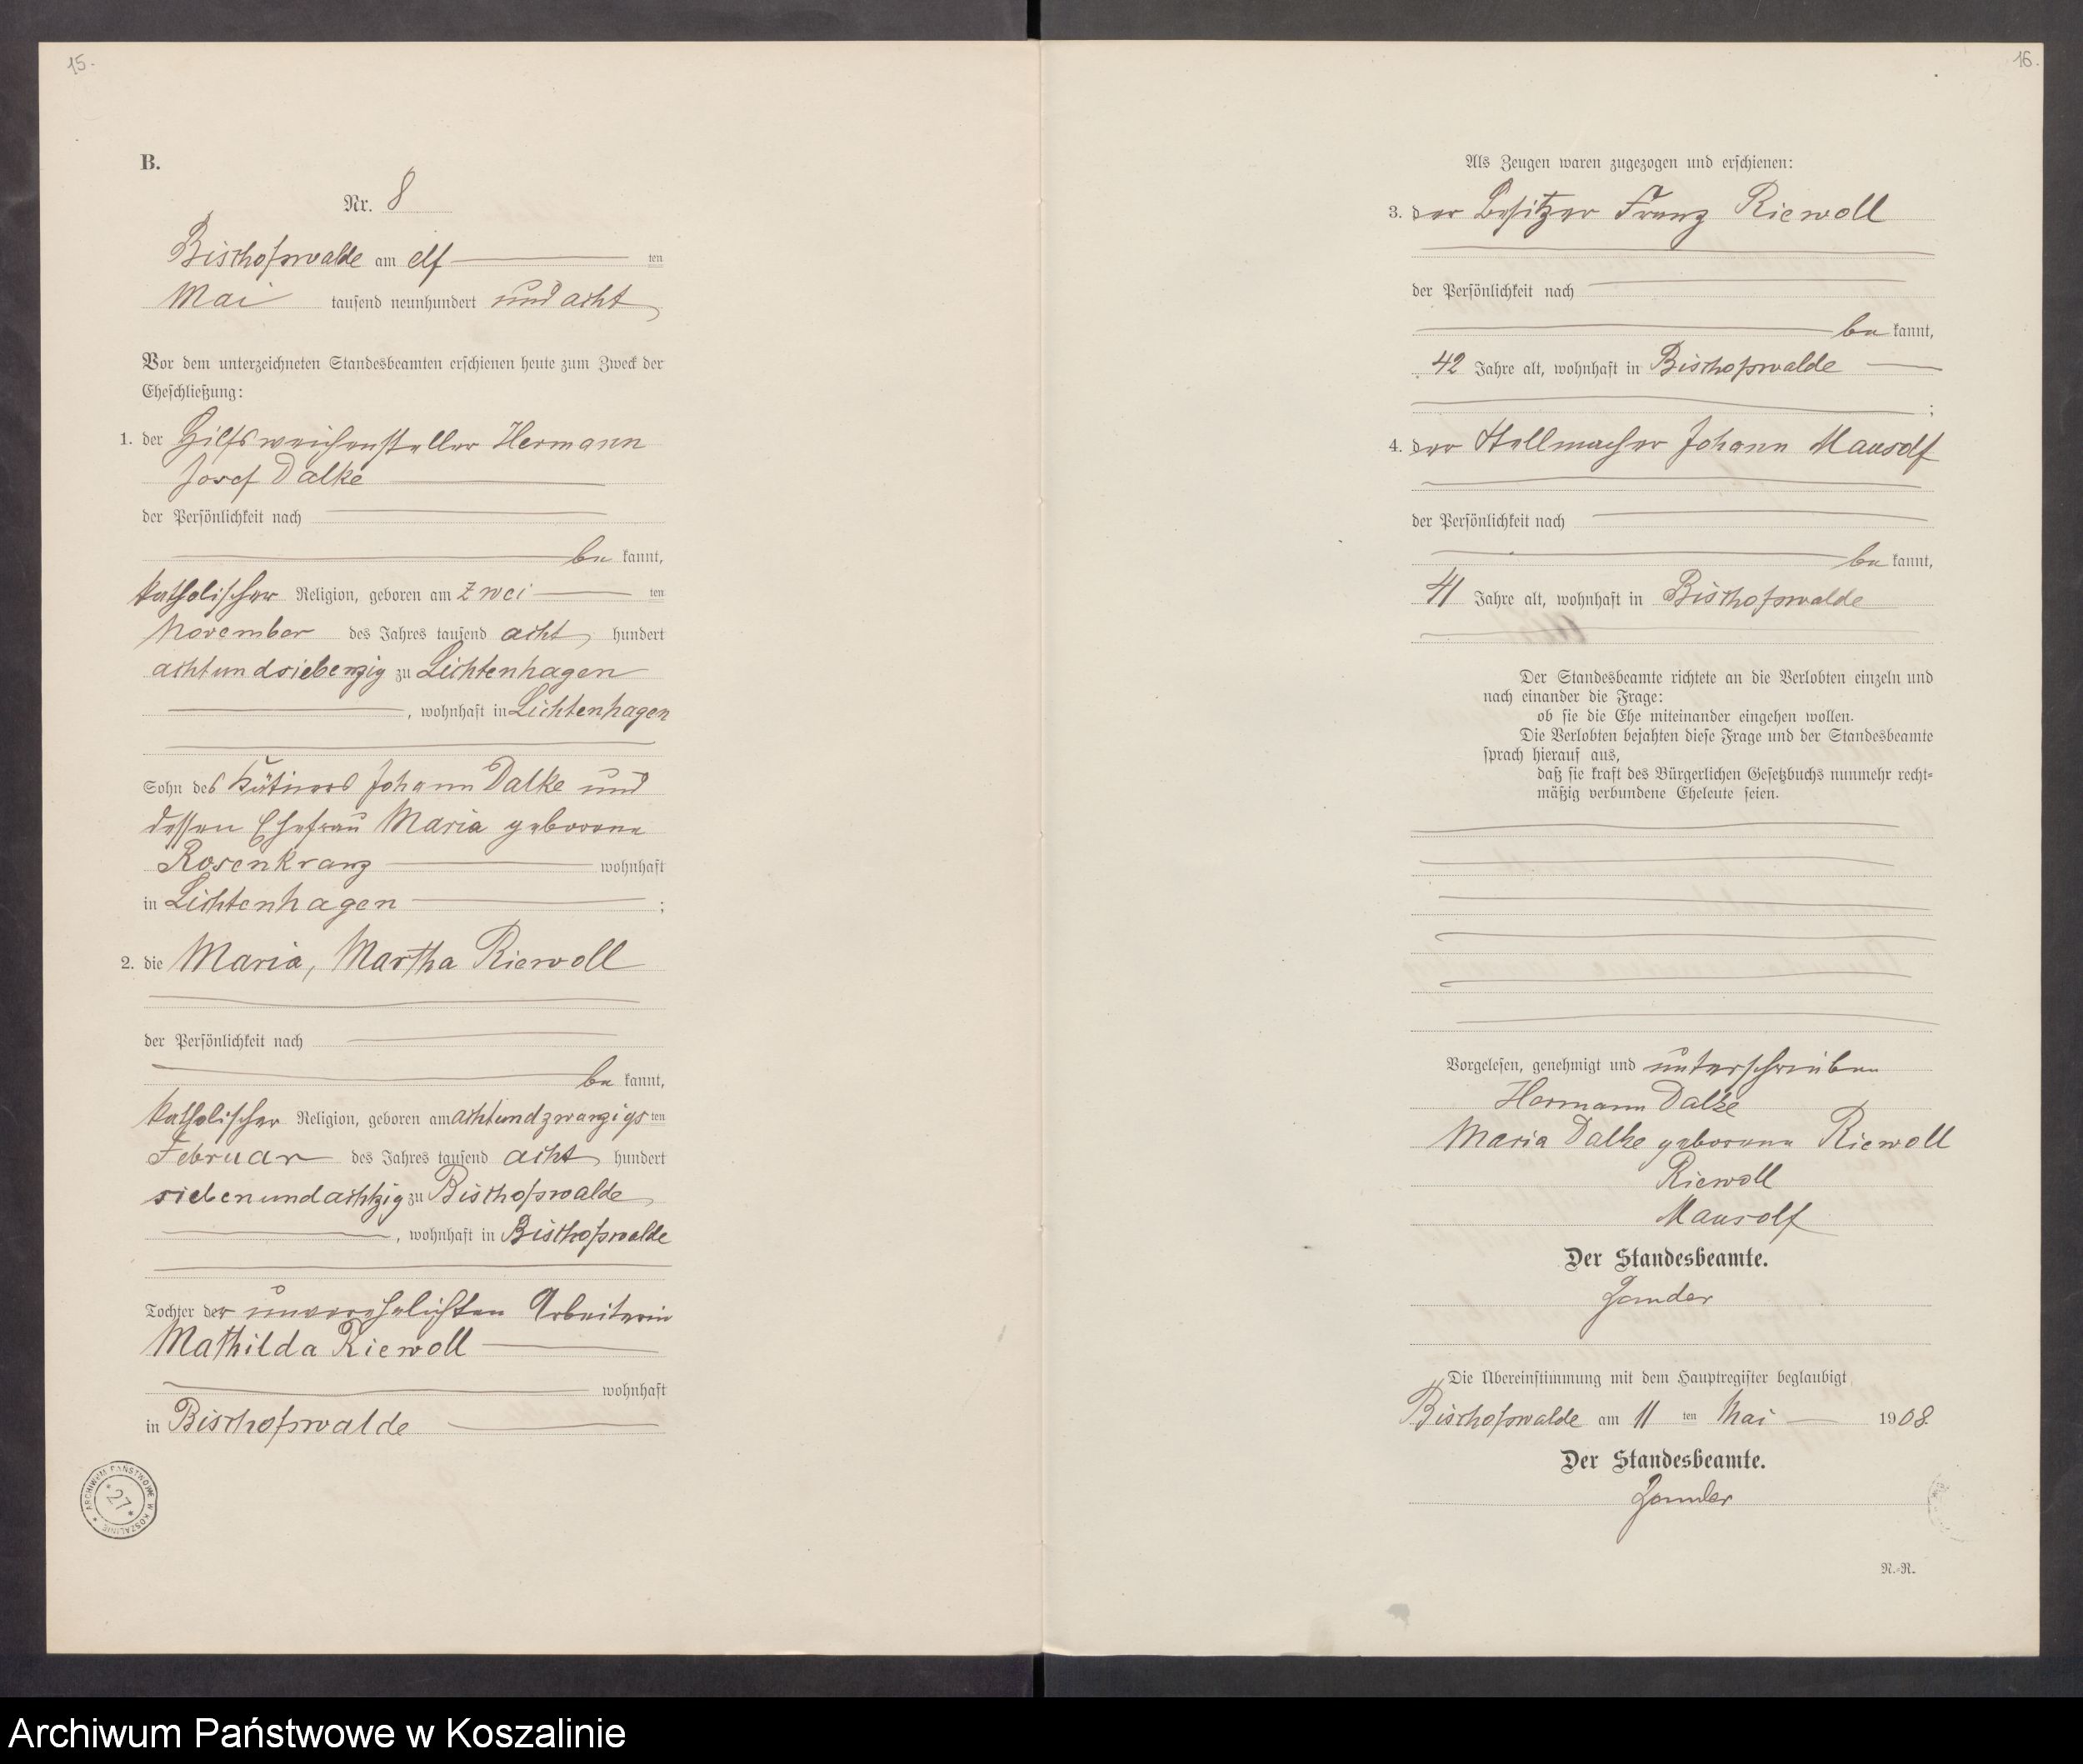 15.
B.
Nr. 8
Bischofswalde am elf ten
Mai tausend neunhundert und acht
Vor dem unterzeichneten Standesbeamten erschienen heute zum Zweck der
Eheschließung:
1. der Hilfsweichensteller Hermann
Josef Dalke
der Persönlichkeit nach
be kannt,
katholischer Religion, geboren am zwei ten
November des Jahres tausend acht hundert
achtundsiebenzig zu Lichtenhagen
, wohnhaft in Lichtenhagen
Sohn des Kätners Johann Dalke und
dessen Ehefrau Maria geborene
Rosenkranz wohnhaft
in Lichtenhagen ;
2. die Maria, Martha Riewoll
der Persönlichkeit nach
be kannt,
katholischer Religion, geboren am achtundzwanzigs ten
Februar des Jahres tausend acht hundert
siebenundachtzig zu Bischofswalde
, wohnhaft in Bischofswalde
Tochter der unverehelichten Arbeiterin
Mathilda Riewoll
wohnhaft
in Bischofswalde
ARCHIWUM PAŃSTWOWE W KOSZALINIE
* 27 *
16.
Als Zeugen waren zugezogen und erschienen:
3. der Besitzer Franz Riewoll
der Persönlichkeit nach
be kannt,
42 Jahre alt, wohnhaft in Bischofswalde
;
4. der Stellmacher Johann Mausolf
der Persönlichkeit nach
be kannt,
41 Jahre alt, wohnhaft in Bischofswalde
Der Standesbeamte richtete an die Verlobten einzeln und
nach einander die Frage:
ob sie die Ehe miteinander eingehen wollen.
Die Verlobten bejahten diese Frage und der Standesbeamte
sprach hierauf aus,
daß sie kraft des Bürgerlichen Gesetzbuchs nunmehr recht-
mäßig verbundene Eheleute seien.
Vorgelesen, genehmigt und unterschrieben
Hermann Dalke
Maria Dalke geborene Riewoll
Riewoll
Mausolf
Der Standesbeamte.
Zander
Die Übereinstimmung mit dem Hauptregister beglaubigt
Bischofswalde am 11 ten Mai 1908.
Der Standesbeamte.
Zander
N.-R.
Archiwum Państwowe w Koszalinie